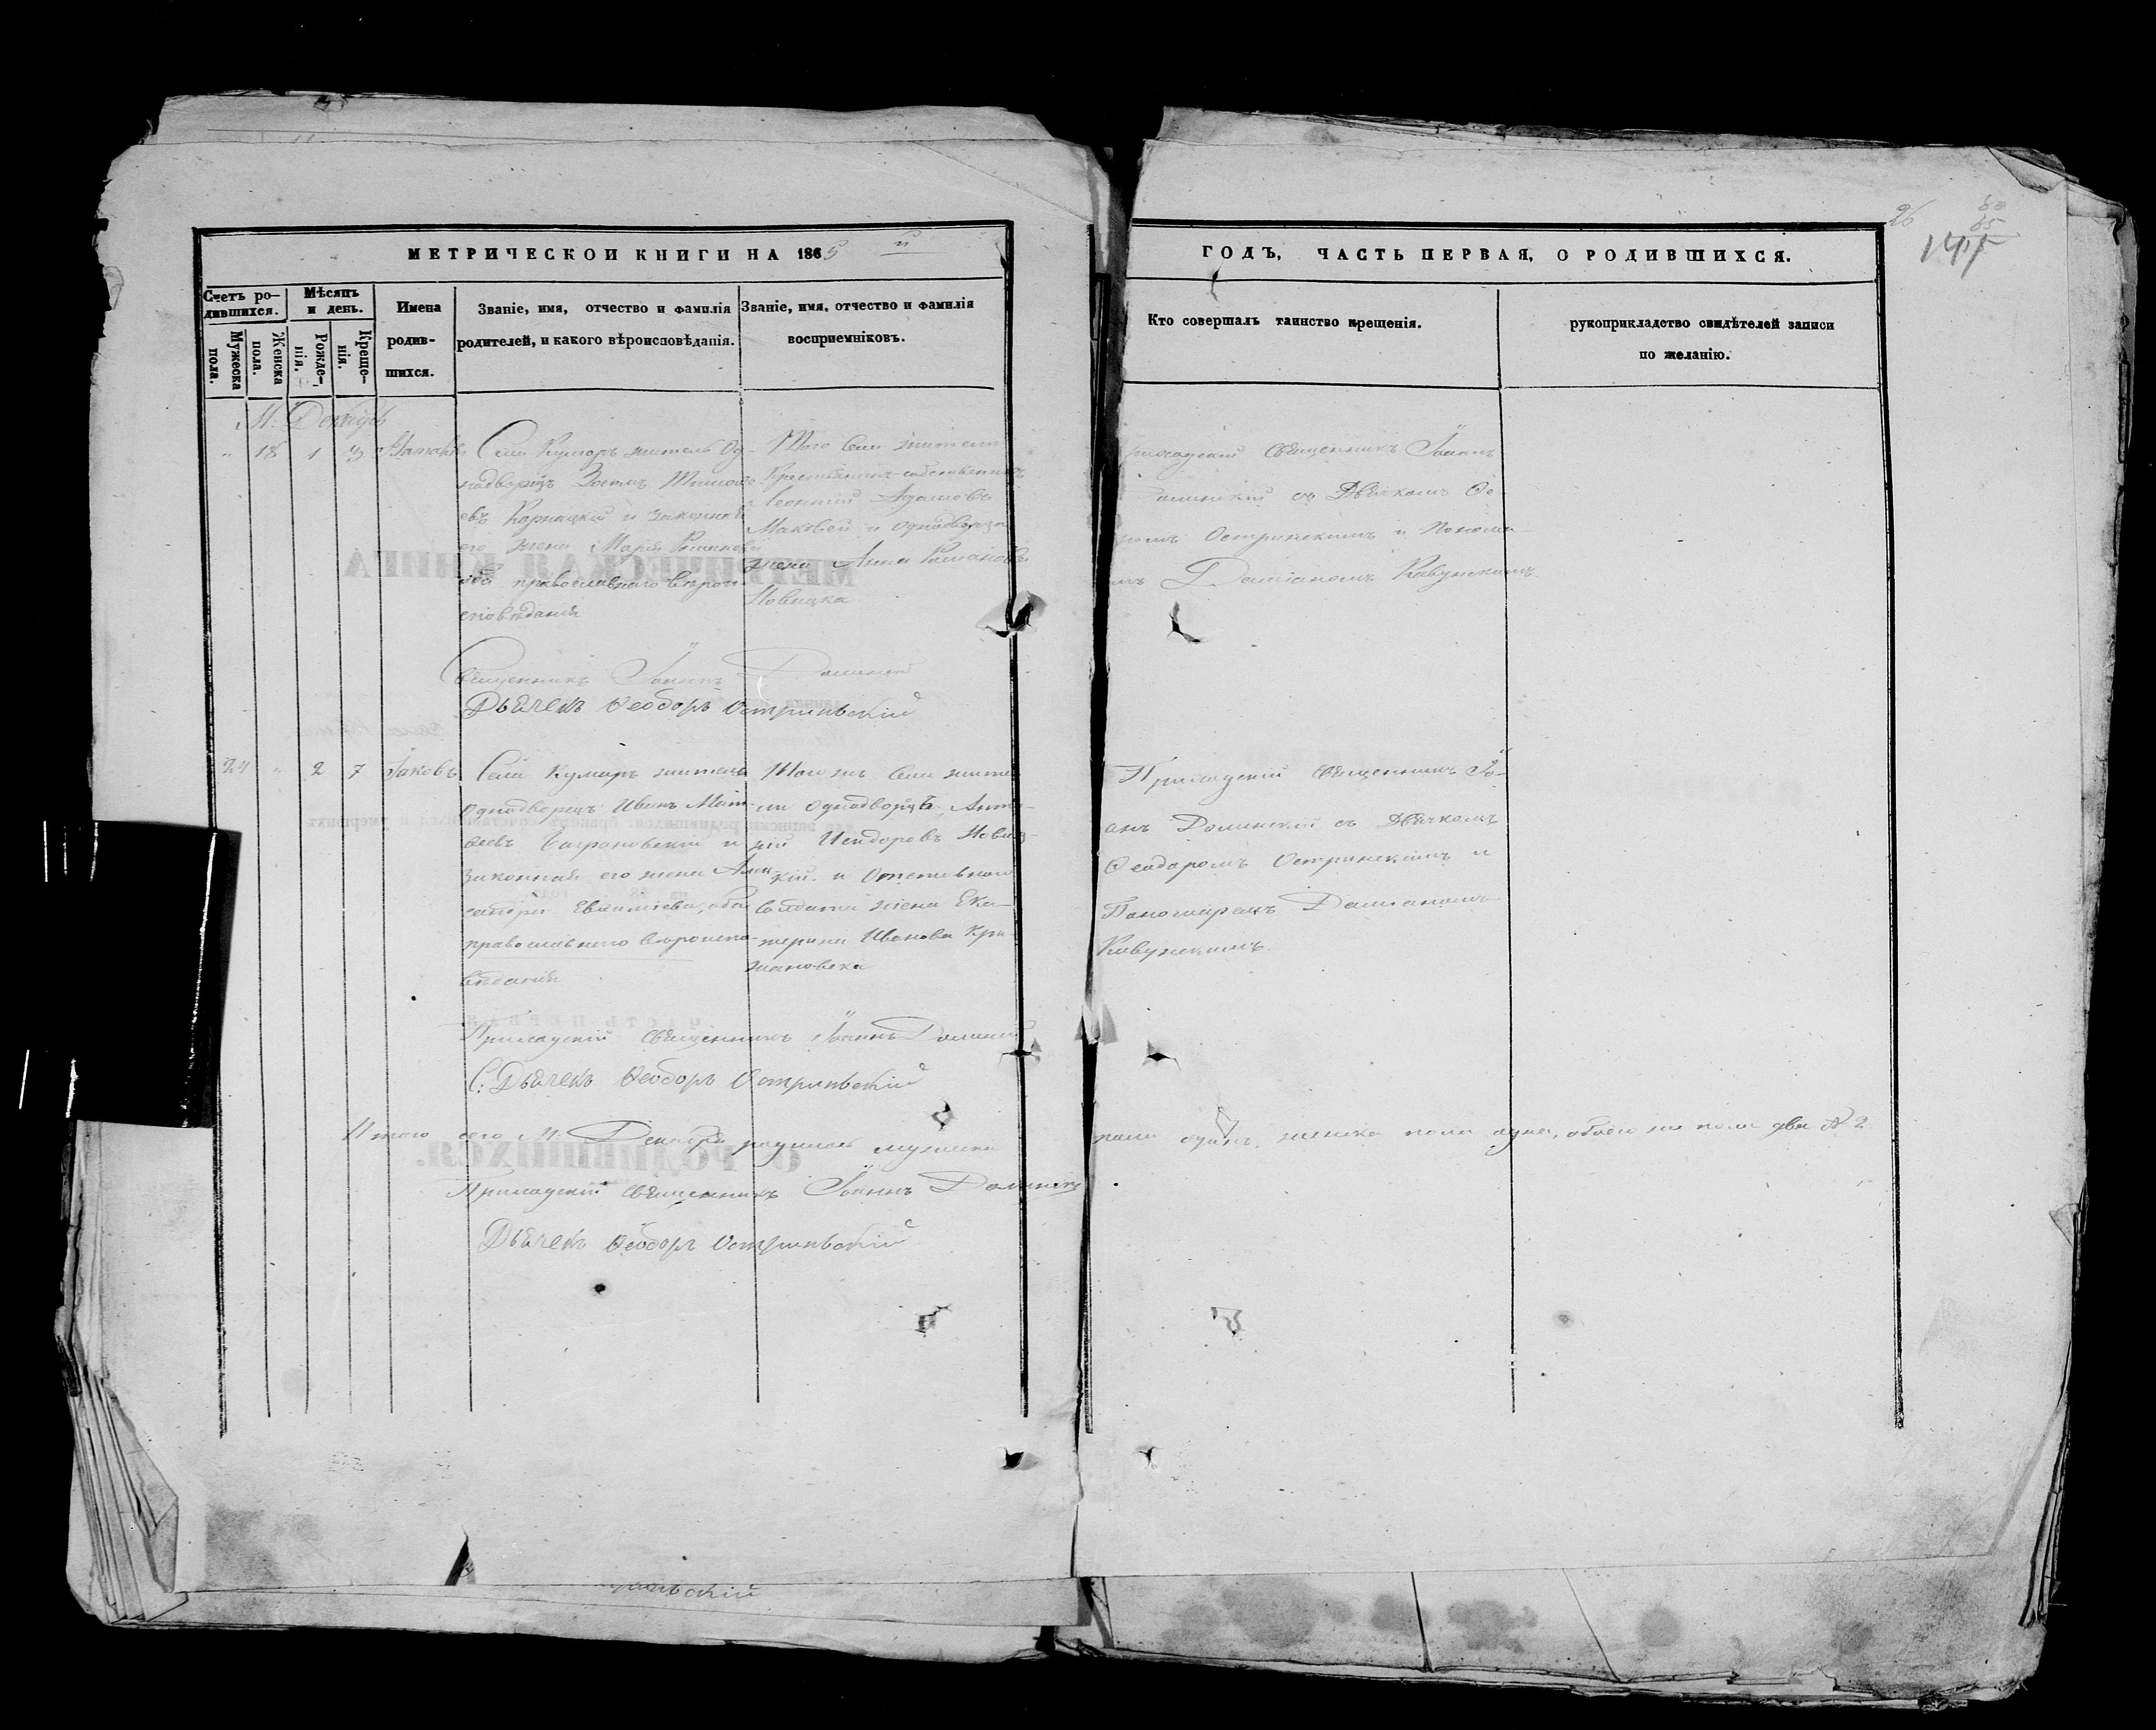 26
МЕТРИЧЕСКОЙ КНИГИ НА 1865 й
ГОДЪ, ЧАСТЬ ПЕРВАЯ, О РОДИВШИХСЯ.
Счетъ ро-
дившихся.
Мужеска
пола.
Женска
пола.
Мѣсяцъ
и день.
Рожде-
нія.
Креще-
нія.
Имена
родив-
шихся.
Званіе, имя, отчество и фамилія
родителей, и какого вѣроисповѣданія.
Званіе, имя, отчество и фамилія
воспріемніковъ.
Кто совершалъ таинство крещенія.
рукоприкладство свидѣтелей записи
по желанію.
М. Декабрь
" 18 1 3
Села Кумаръ житель Од-
надворецъ
Карпацкій и законная
его жена Марія Романова
оба православнаго вѣрои-
сповѣданія
Того села жители
Крестьянинъ-собственникъ
Леонтій Адамовъ
Маковей и однодворца
жена Анна Романова
Новицка
Священникъ Іоаннъ
Долинскій съ Дьячкомъ Ѳе-
Остринскимъ и Понома-
Даміаномъ Кавунскимъ.
Священникъ Іоаннъ Долинскій
Дьячекъ Ѳеодоръ Остриньскій
24 " 2 7 Іаковъ
Села Кумаръ житель
Однодворецъ Иванъ Мат-
ѳеевъ и
законная его жена Алек-
сандра Евѳиміева, оба
православнаго вѣроиспо-
вѣданія
Того жъ села жите-
ли однодворецъ Анто-
ній Исидоровъ Новиц-
кій и Отставнаго
солдата жена Ека-
терина Иванова Кри-
жановска
Приходскій Священникъ Іо-
анъ Долинскій съ Дьячкомъ
Ѳеодоромъ Остринскимъ и
Пономаремъ Даміаномъ
Кавунскимъ.
Приходскій Священникъ Іоаннъ Долинскій
С: Дьячекъ Ѳеодоръ Остриньскій
Итого сего М. Декабря родилось мужеска пола одинъ, женска пола одна, обоего же пола два № 2
Приходскій Священникъ Іоаннъ Долинскій
Дьячекъ Ѳеодоръ Остриньскій